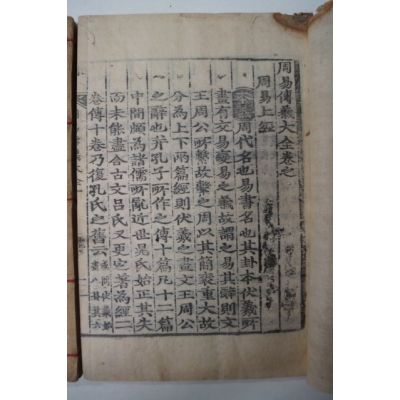 周易傳義大全卷之
周易上經
周代名也易書名也其卦本伏羲所
畫有交易變易之義故謂之易其辭則文
王周公所繫故繫之周以其簡袠重大故
分為上下兩篇經則伏羲之畫文王周公
之辭也并孔子所作之傳十篇凡十二篇
中間頗為諸儒所亂近世晁氏始正其失
而未能盡合古文呂氏又更定著為經二
卷傳十卷乃復孔氏之舊云